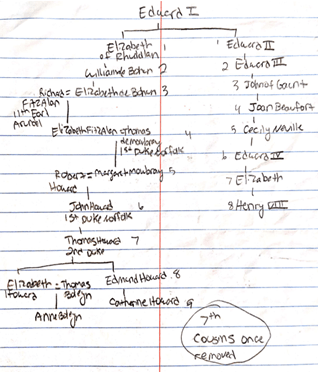 Edward I
Elizabeth of Rhuddlan 1
1 Edward II
William de Bohun 2
2 Edward III
Richard = Elizabeth de Bohun 3
FitzAlan
11th Earl
Arundel
3 John of Gaunt
4 Joan Beaufort
Elizabeth FitzAlan = Thomas 4
de mowbray
1st Duke Norfolk
5 Cecily Neville
Robert = Margaret Mowbray 5
Howard
6 Edward IV
7 Elizabeth
John Howard 6
1st Duke Norfolk
8 Henry VIII
Thomas Howard 7
2nd Duke
Elizabeth = Thomas
Howard Boleyn
Edmund Howard 8
Anne Boleyn
Catherine Howard 9
7th
cousins once
removed